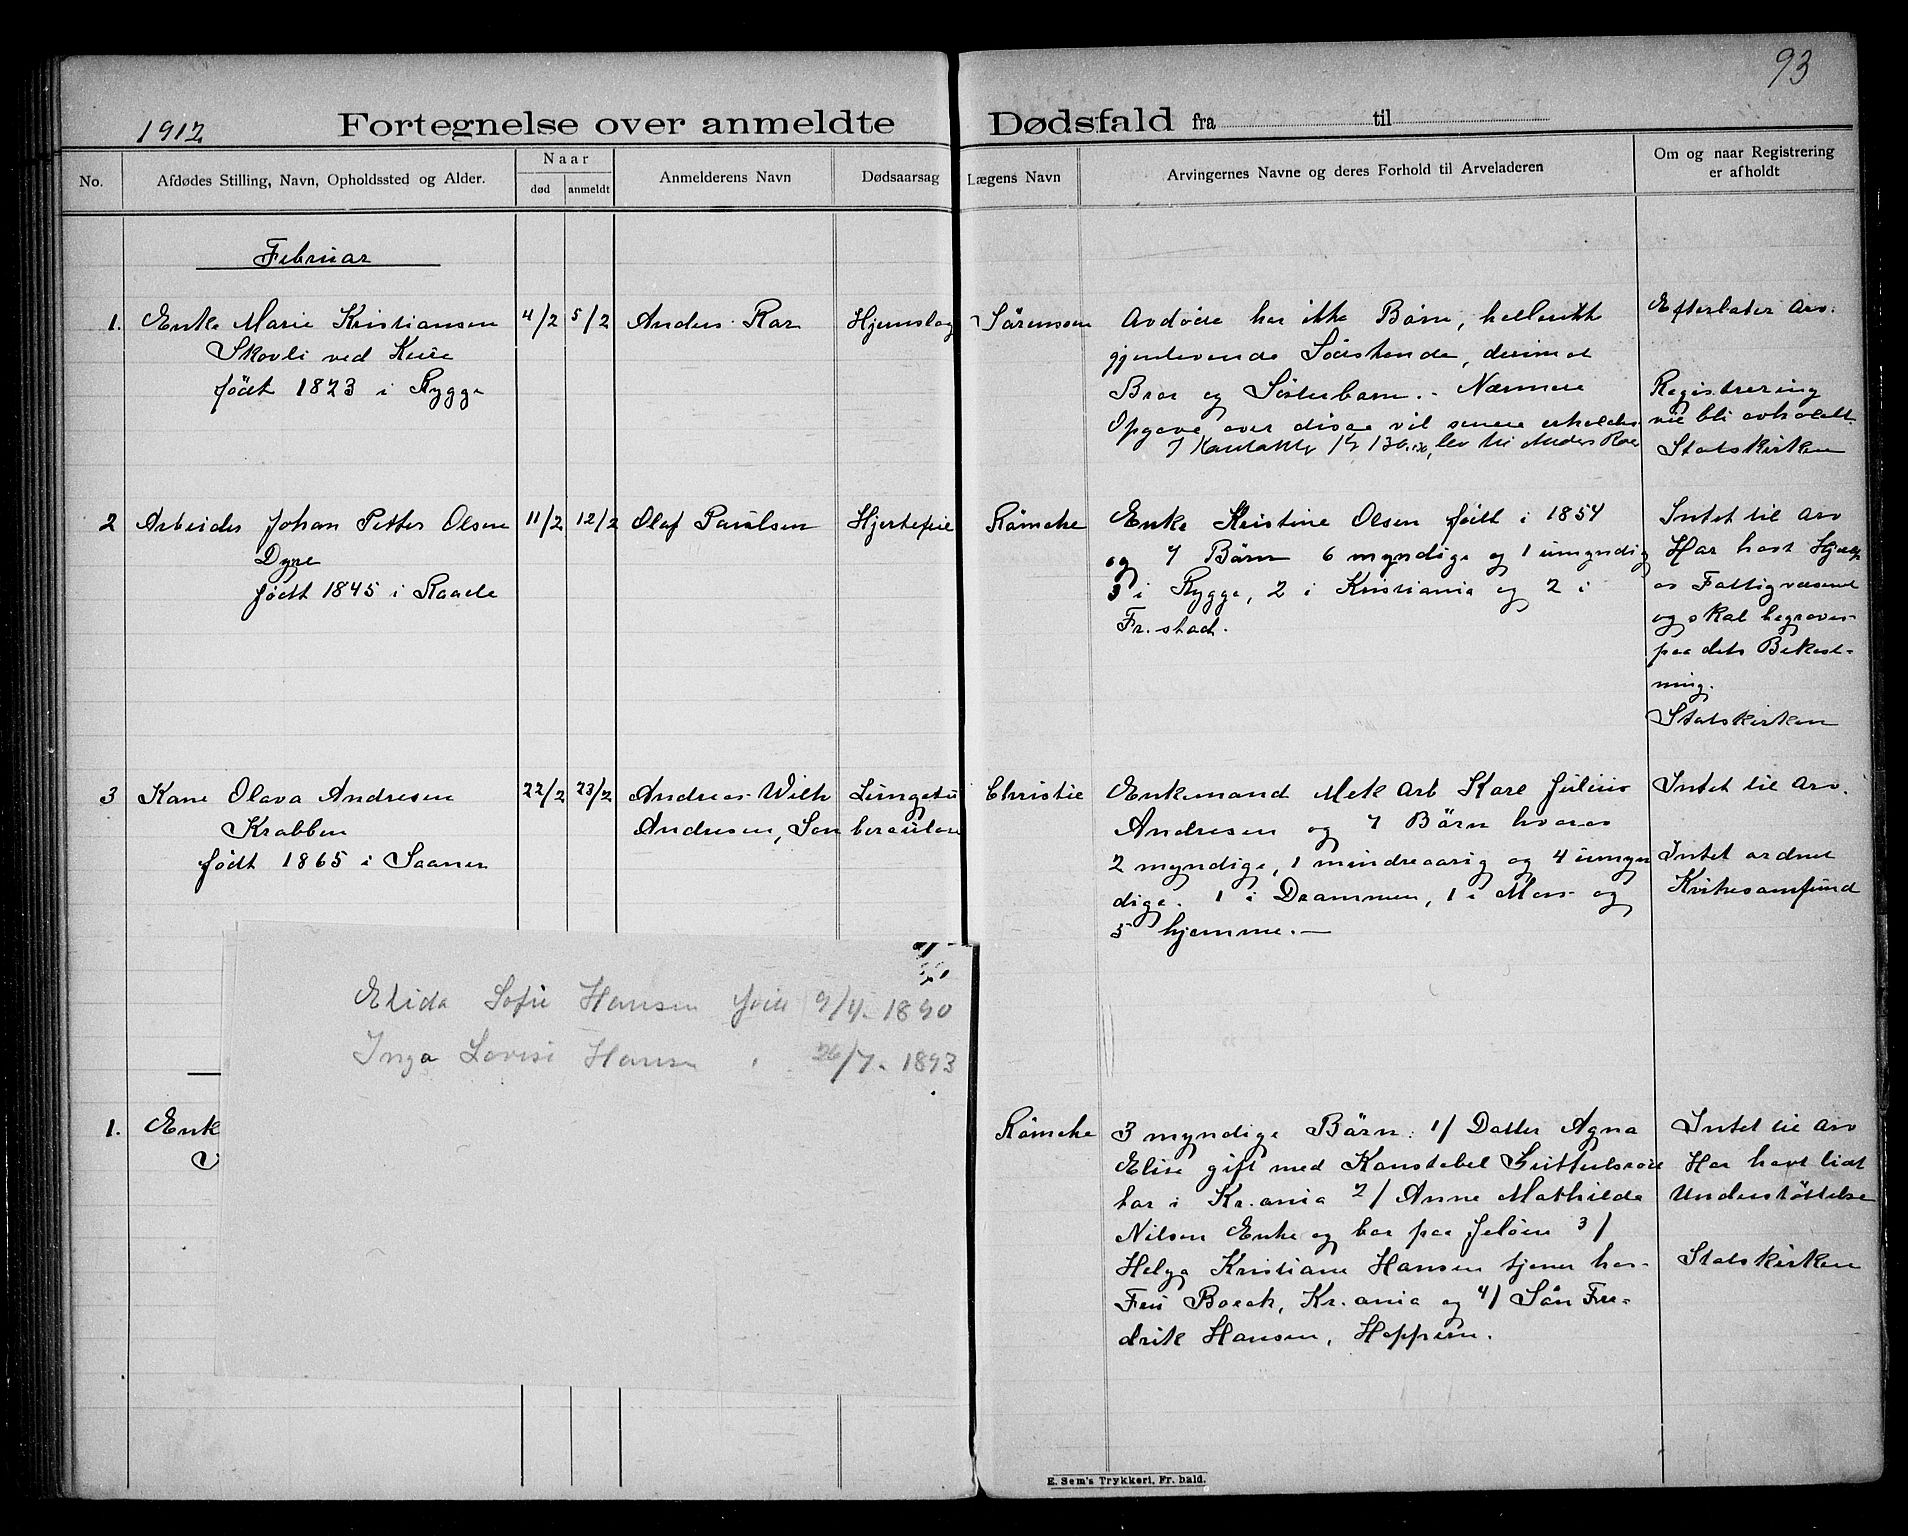 93
1912 Fortegnelse over anmeldte Dødsfald fra til
No.
Afdødes Stilling, Navn, Opholdssted og Alder.
Naar
død anmeldt
Anmelderens Navn
Dødsaarsag
Lægens Navn
Arvingernes Navne og deres Forhold til Arveladeren
Om og naar Registrering
er afholdt
Februar
1. Enke Marie Kristiansen
Skovli ved
født 1823 i Rygge
4/2 5/2
Anders Rør
Hjernslag
Sørensen
Avdøde har ikke Børn, heller ikke
gjenlevende Södskende, derimot
Bror og Søsterbørn. Nærmere
Opgave over disse vil senere erholdes
I Kontakter Kr 130.00, lev til Anders Rør
Efterlater arv.
Registrering
vil bli avholdt.
Statskirken
2 Arbeider Johan Petter Olsen
Dyre
født 1845 i Raade
11/2 12/2
Olaf Paulsen
Hjertefeil
Rømcke
Enke Kristine Olsen født i 1854
og 7 Børn 6 myndige og 1 umyndig
3 i Rygge, 2 i Kristiania og 2 i
Fr.stad.
Intet til arv
Har havt Hjælp
av Fattigvæsenet
og skal begraves
paa dets Bekost-
ning.
Statskirken
3 Kone Olava Andresen
Krabben
født 1865 i Saaner
22/2 23/2
Andreas Wilh
Andresen, Søn
Lungetu
berculose
Christie
Enkemand Mek Arb Karl Julius
Andresen og 7 Børn hvorav
2 myndige, 1 mindreaarig og 4 umyn
dige. 1 i Drammen, 1 i Moss og
5 hjemme.—
Intet til arv.
Intet ordnet
Kirkesamfund
Elida Sofie Hansen född 9/4. 1890
Inga Lovise Hansen 26/7. 1893
1. Enk
Rømcke
3 myndige Børn: 1/ Datter Agna
Elise gift med Konstabel
bor i Kr.ania 2/ Anne Mathilde
Nilsen Enke og bor paa Jeløen 3/
Helga Kristiane Hansen tjener hos
Fru Boeck, Kr.ania og 4/ Søn Fre-
drik Hansen, Hoppern.
Intet til arv
Har havt lidt
Understöttelse
Statskirken
E. Sem's Trykkeri, Fr.hald.